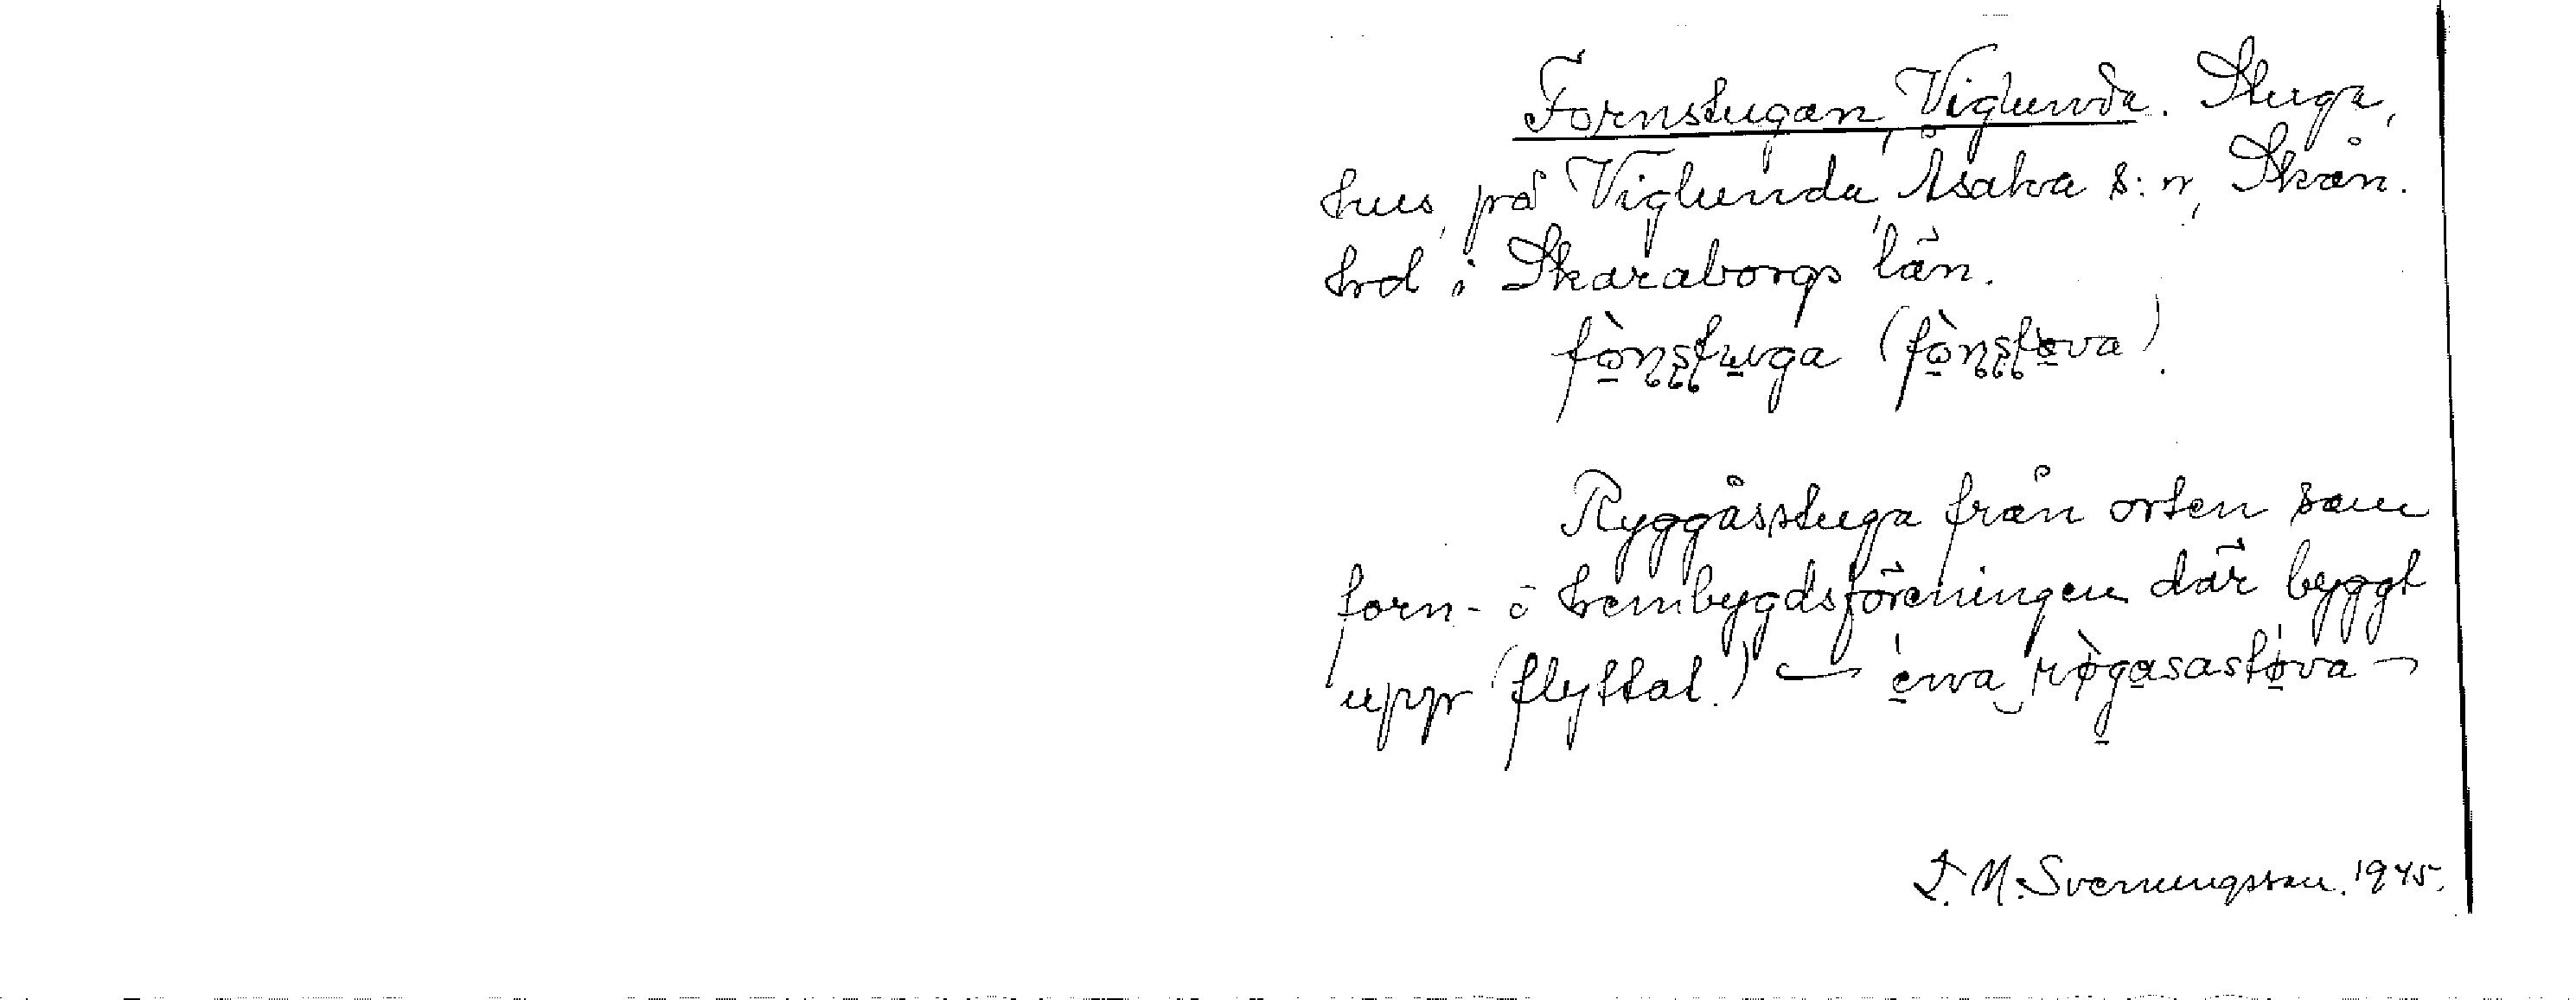 Fornstugan, Viglunda. Stuga,
hus, på Viglunda, Åsaka s:n, Skån.
hrd i Skaraborgs län.
fònstuga (fònstøva).
Ryggåsstuga från orten som
forn- o hembygdsföreningen där byggt
upp (flyttat)
I. M. Svenungsson. 1945.